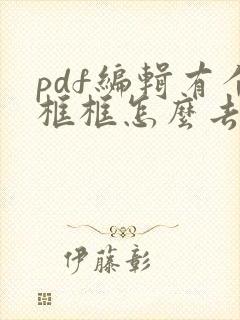 pdf編輯有
框框怎麼
伊藤彰